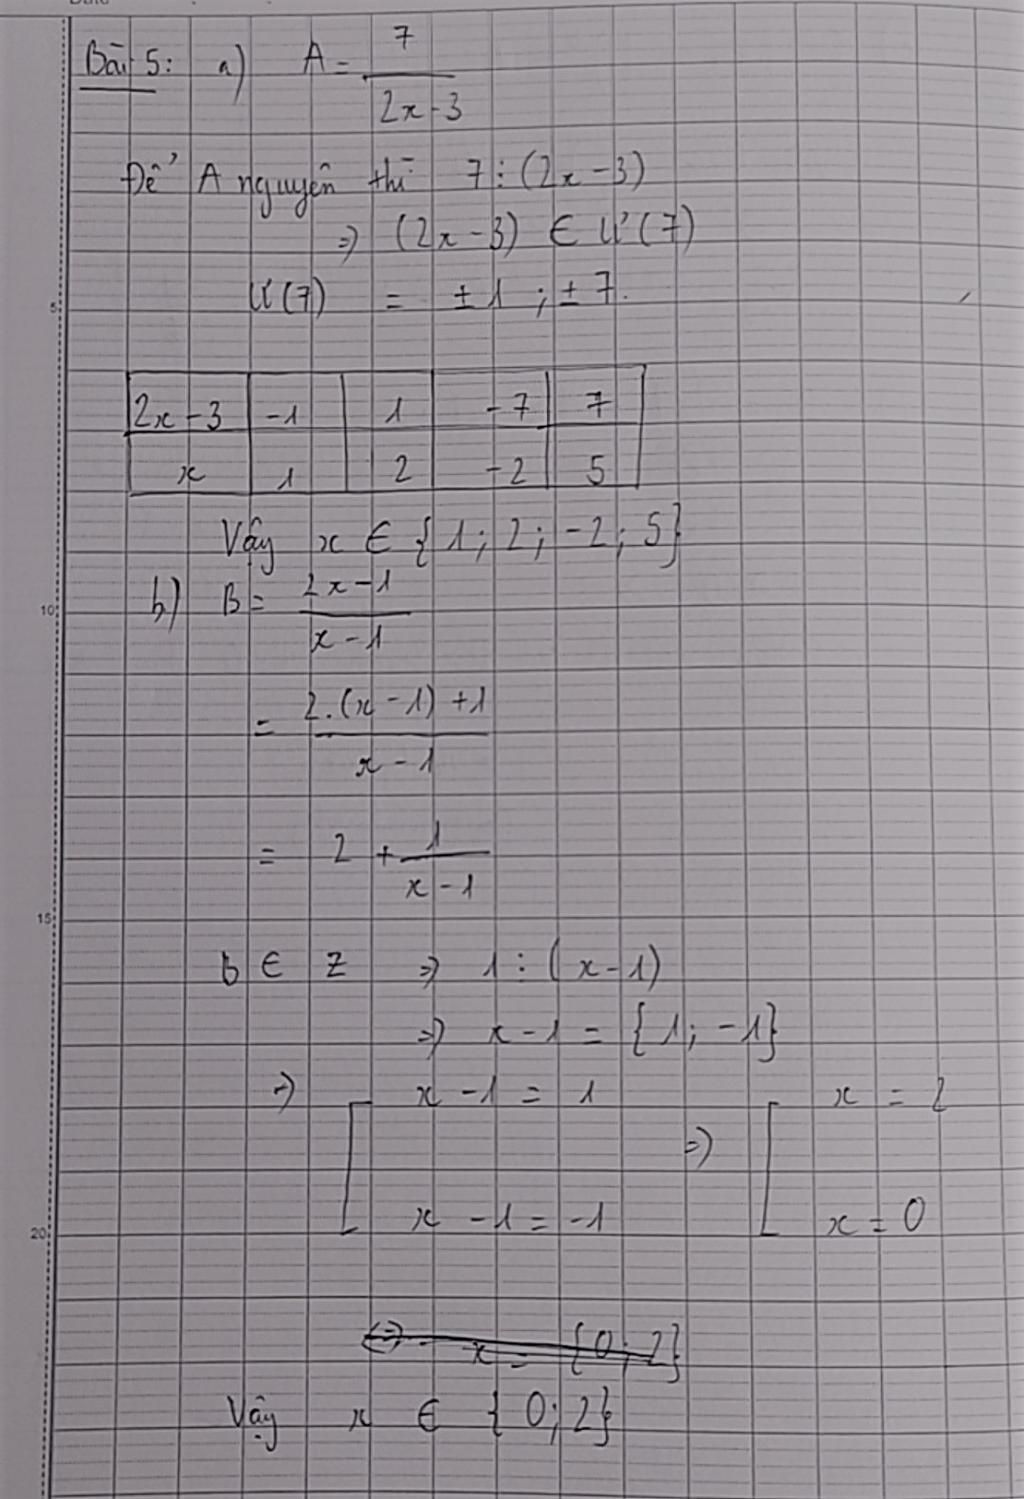 Bài 5: a) A = 7 / (2x-3)
Để A nguyên thì 7 ⋮ (2x-3)
=> (2x-3) ∈ Ư(7)
Ư(7) = ±1 ; ±7.
2x-3 | -1 | 1 | -7 | 7
x | 1 | 2 | -2 | 5
Vậy x ∈ {1; 2; -2; 5}
b) B = (2x-1) / (x-1)
= (2.(x-1)+1) / (x-1)
= 2 + 1 / (x-1)
b ∈ Z => 1 ⋮ (x-1)
=> x-1 = {1; -1}
=> [ x-1 = 1 => [ x = 2
x-1 = -1 x = 0
(=) x = {0; 2}
Vậy x ∈ {0; 2}
5
10
15
20